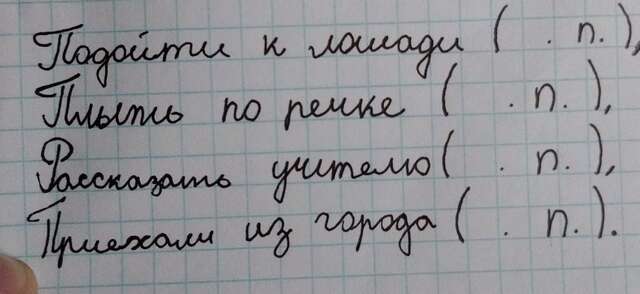 Подойти к лошади ( . п.),
Плыть по речке ( . п.),
Рассказать учителю ( . п.),
Приехали из города ( . п.).